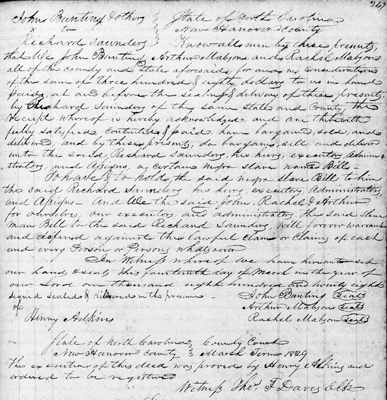 267
John Bunting & others } State of North Carolina
to } New Hanover County
Richard Saunders } Know all men by these presents,
that We John Bunting, Arthur Mabson and Rachel Mabson
all of the county and State aforesaid for and in consideration
of the sum of three hundred & eighty dollars to us in hand
paid, at and before the sealing & delivery of these presents,
by Richard Saunders of the same State and County, the
receipt whereof is hereby acknowledged and are therewith
fully satisfied, contented & paid, have bargained, sold, and
delivered, and by these presents, do bargain, sell and deliver
unto the said Richard Saunders, his heirs, executors, Adminis-
trators, and Assigns a certain negro slave named Bill,
To have & to hold the said negro slave Bill to him
the said Richard Saunders his heirs, executors Administrators
and Assigns. And We the said John, Rachel & Arthur
for ourselves, our executors and administrators, the said Slave
man Bill to the said Richard Saunders, will forever warrant
and defend against the lawful claims or Claims of each
and every Person or Persons Whatsoever.
In Witness whereof we have hereunto set
our hand & seals this fourteenth day of March in the year of
our Lord one thousand eight hundred and twenty eight
signed sealed & delivered in the presence John Bunting Seal
of Arthur Mabson Seal
Henry Adkins Rachel Mabson Seal
State of North Carolina } County Court
New Hanover County } March Term 1829
The execution of this deed was proved by Henry Adkins and
ordered to be registered
Witness Thos. F. Davis Clk